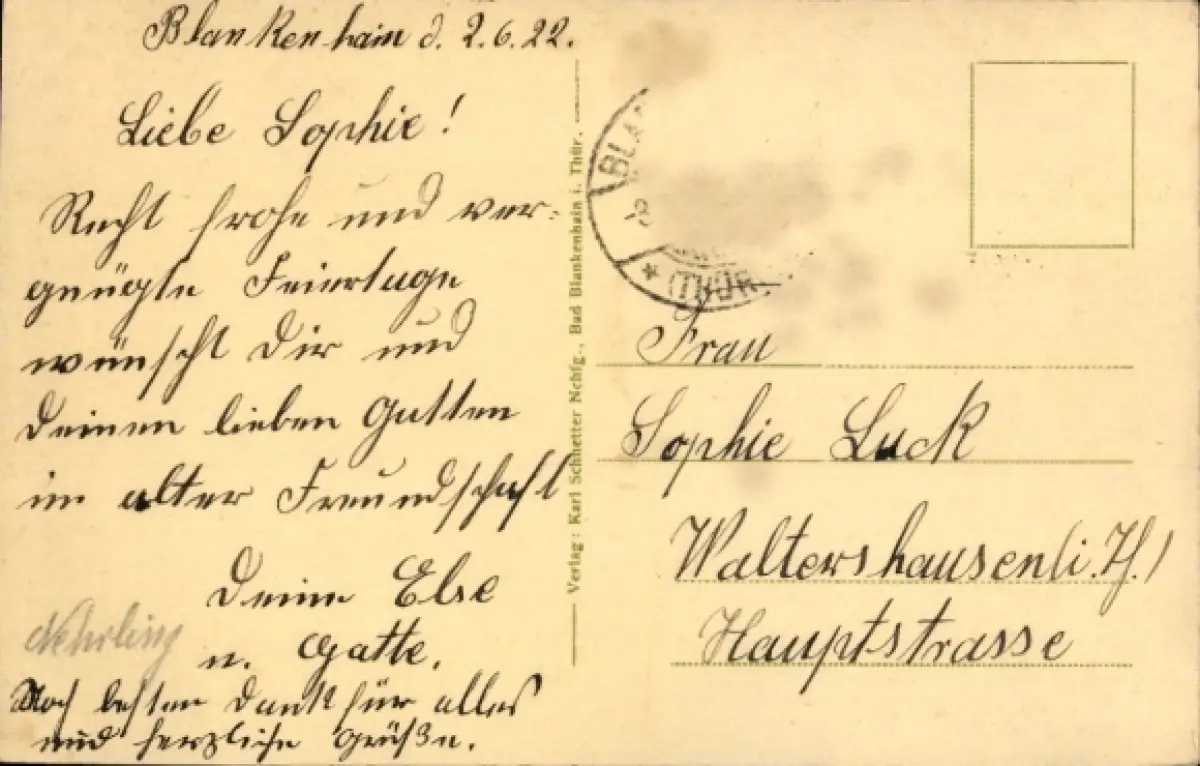 Blankenhain d. 2.6.22.
Liebe Sophie!
Recht frohe und ver-
gnügte Feiertage
wünscht Dir und
Deinen lieben Gatten
in alter Freundschaft
Deine Else
Nehrling
u. Gatte.
Noch besten Dank für alles
und herzliche Grüße.
Verlag: Karl Schhetter Nchfg., Bad Blankenhain i. Thür.
BLA
Frau
Sophie Luck
Waltershausen (i. Th.)
Hauptstrasse